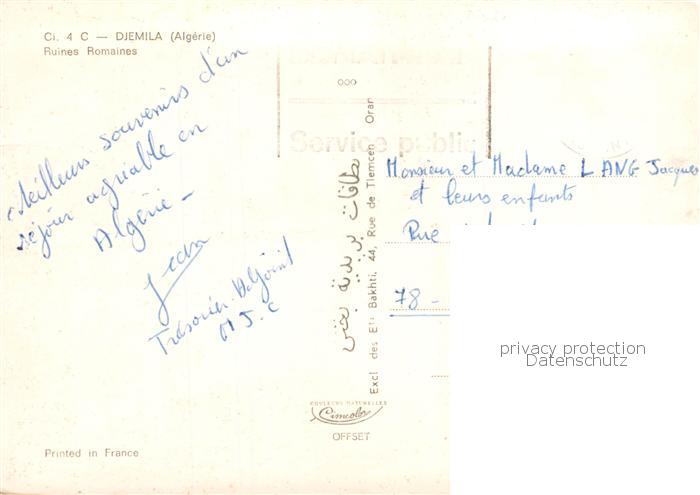 Ci. 4 C — DJEMILA (Algérie)
Ruines Romaines
Meilleurs souvenirs d'un
séjour agréable en
Algérie —
Jean
Trésorier Adjoint
Service public
بطاقات بريدية بختي
Excl des Ets Bakhti, 44, Rue de Tlemcen Oran
Monsieur et Madame LANG Jacques
et leurs enfants
Rue
78 -
privacy protection
Datenschutz
COULEURS NATURELLES
Cimcolor
OFFSET
Printed in France